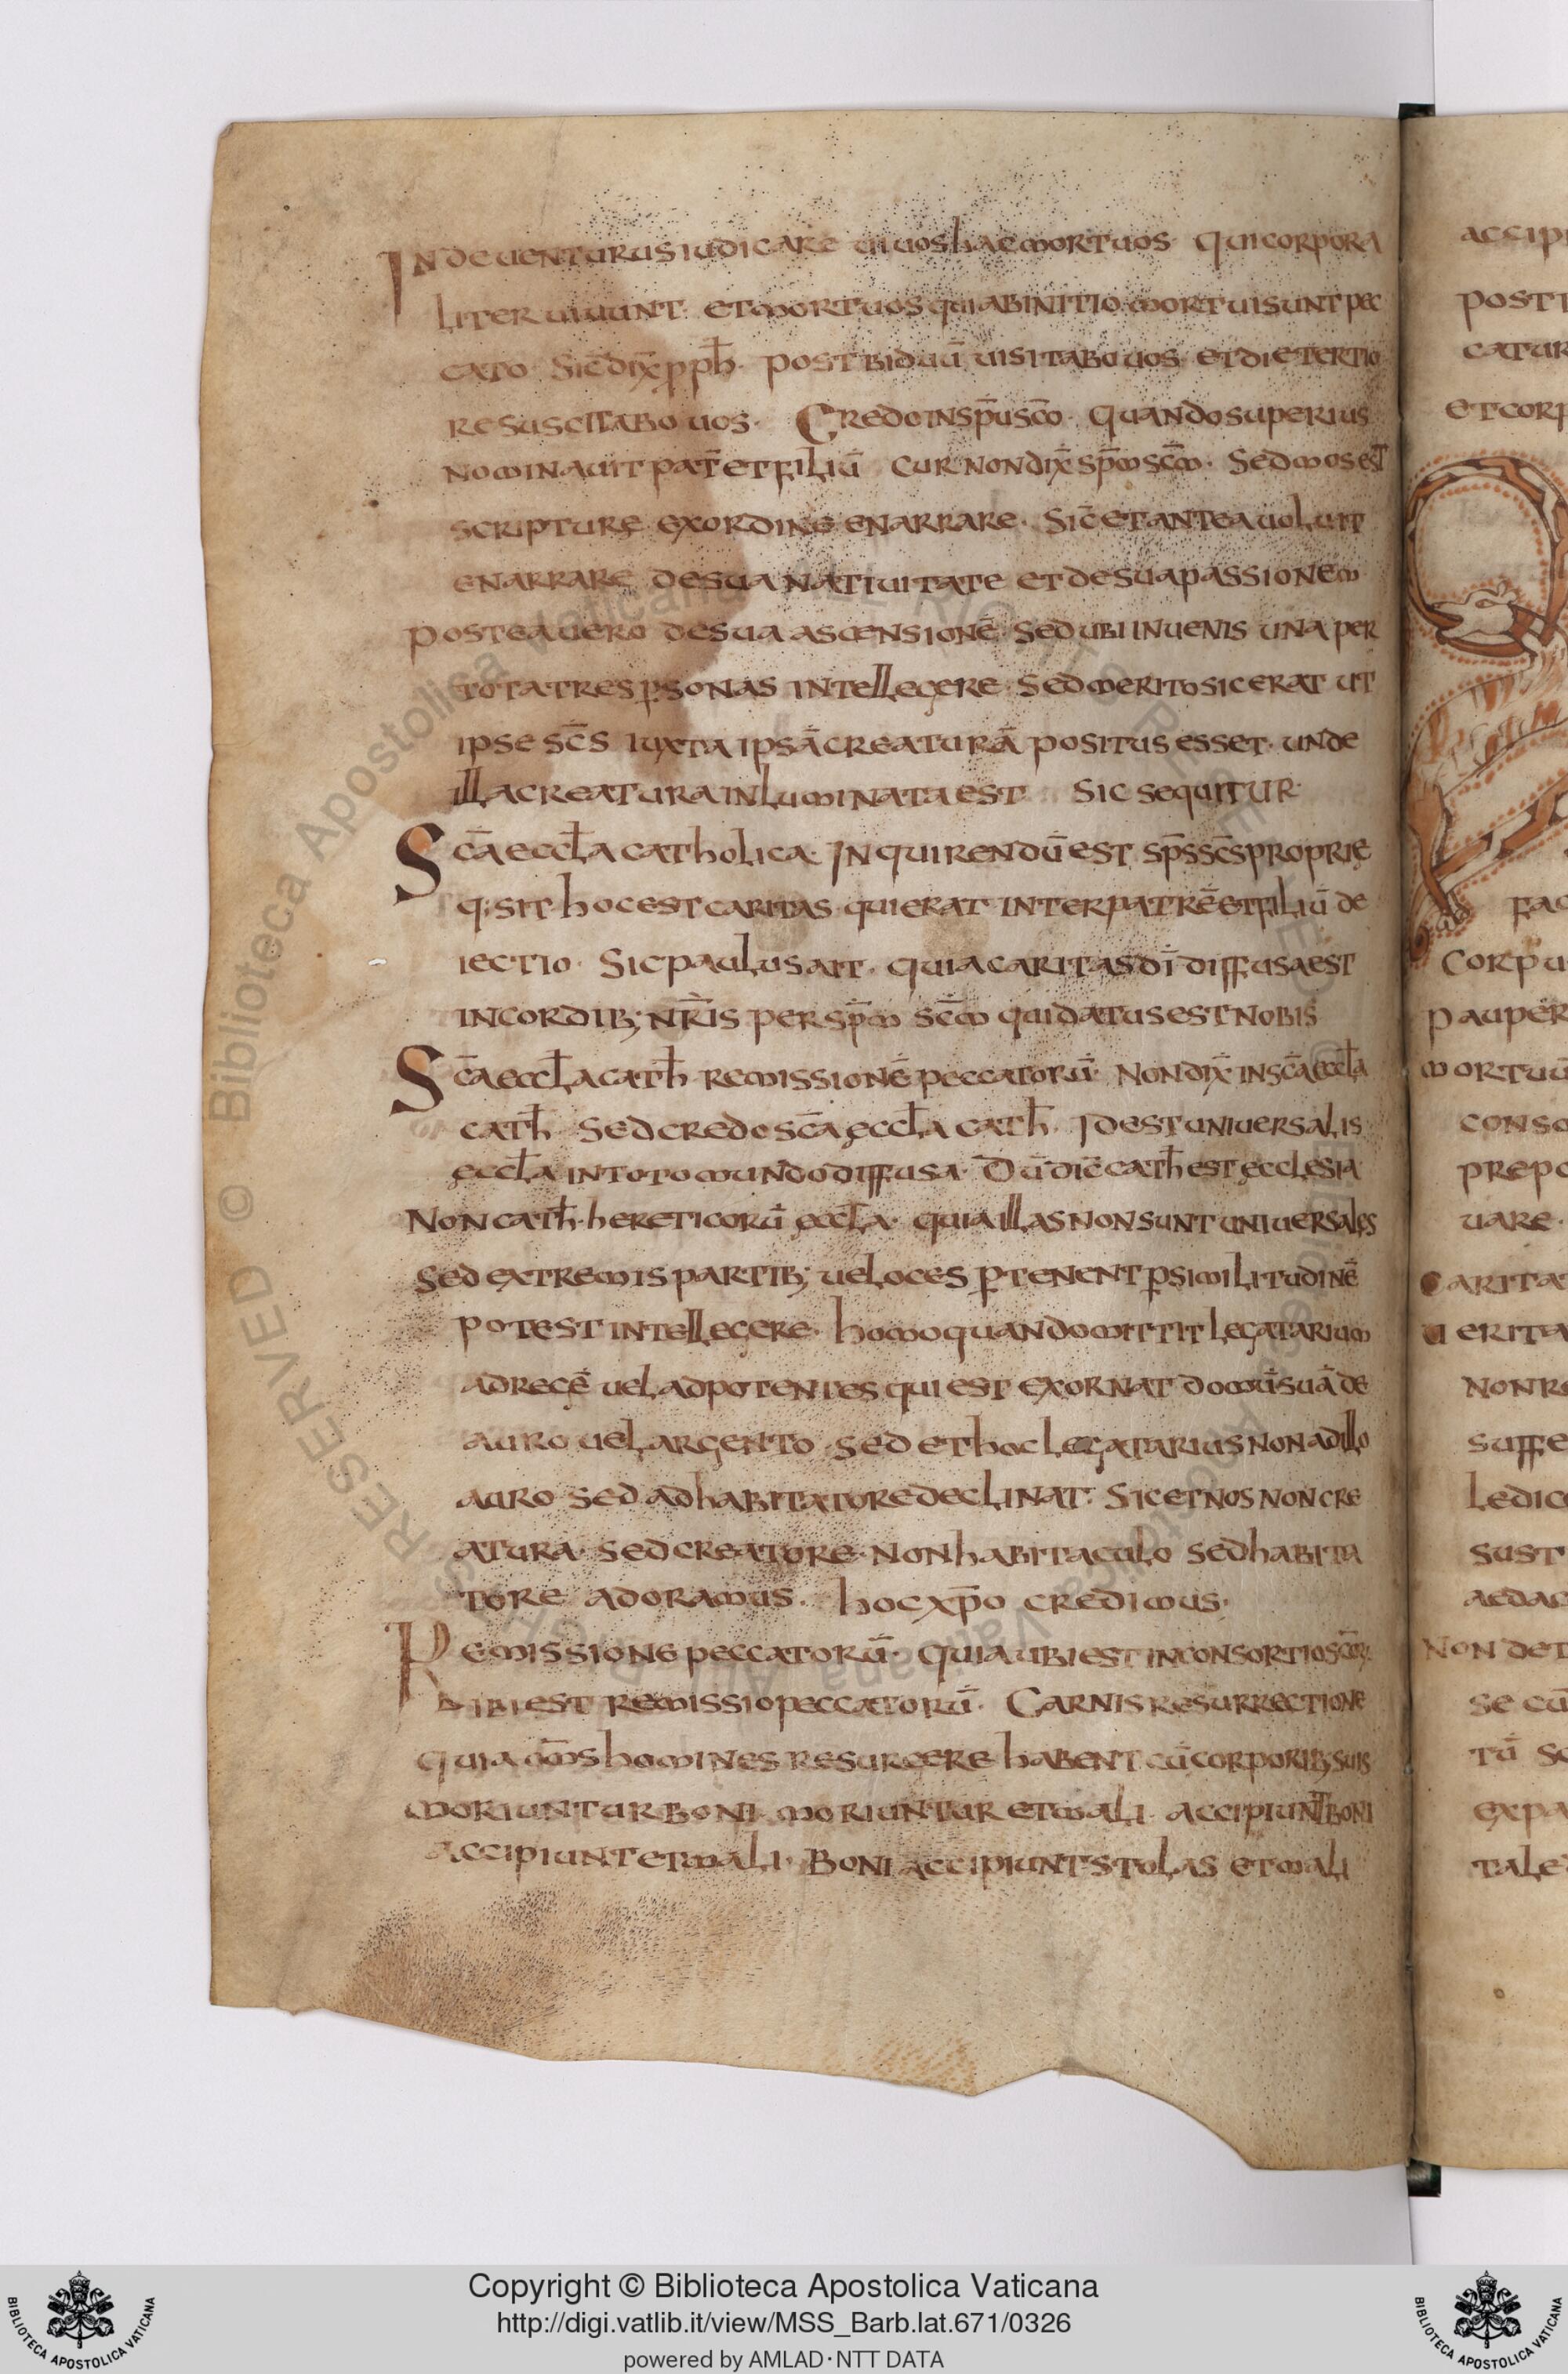 Inde uenturus iudicare uiuos hac mortuos· qui corpora
liter uiuunt· et mortuos qui ab initio mortui sunt pec
cato· Sic̄ dix̄ p ph̄· post biduū uisitabo uos· et die tertio
resuscitabo uos· Credo in sp̄u sc̄o· quando superius
nominauit pat̄ et filiū cur non dix̄ sp̄m sc̄m· Sed mos est
scripture ex ordine enarrare· Sic̄ et antea uoluit
enarrare de sua natiuitate et de sua passionem
postea uero de sua ascensionē· sed ubi inuenis una per
tota tres ꝑsonas intellegere· sed merito sic erat ut
ipse sc̄s iuxta ipsā creaturā positus esset· unde
illa creatura inluminata est Sic sequitur·
Sc̄a eccl̄a catholica· Inquirendū est sp̄s sc̄s proprie
q; sit· hoc est caritas· qui erat inter patrē et filiū de
iectio· Sic paulus ait· quia caritas dī diffusa est
in cordib; nr̄is per sp̄m sc̄m qui datus est nobis
Sc̄a eccl̄a cath̄· remissionē peccatorū· Non dix̄ in sc̄a eccl̄a
cath̄ sed credo sc̄a ęccl̄a cath̄· Idest uniuersalis
ęccl̄a in toto mundo diffusa· Dū dic̄ cath̄ est ecclesia
Non cath̄· hereticorū ęccl̄a· quia illas non sunt uniuersales
sed extremis partib; ueloces ꝑtenent ꝑ similitudinē
potest intellegere· homo quando mittit legatarium
ad regē uel ad potentes qui est exornat domū suā de
auro uel argento· sed et hoc legatarius non ad illo
auro sed ad habitatore declinat· Sic et nos non cre
atura· sed creatore· non habitaculo sed habita
tore adoramus· hoc xp̄o credimus·
Remissione peccatorū· quia ubi est in consortio sc̄orꝝ
ibi est remissio peccatorū· Carnis resurrectione
quia om̄s homines resurgere habent cū corporib; suis
moriuntur boni moriuntur et mali· accipiunt boni
accipiunt et mali· Boni accipiunt stolas et mali
accipi
post
catur
et corp
fac
Corpu
pauper
mortuū
conso
prepo
uare·
Carita
uerita
non re
suffe
ledic
sust
aedac
Non det
se cū
tū sc
expa
tale
Copyright © Biblioteca Apostolica Vaticana
http://digi.vatlib.it/view/MSS_Barb.lat.671/0326
powered by AMLAD·NTT DATA
BIBLIOTECA APOSTOLICA VATICANA
BIBLIOTECA APOSTOLICA VATICANA